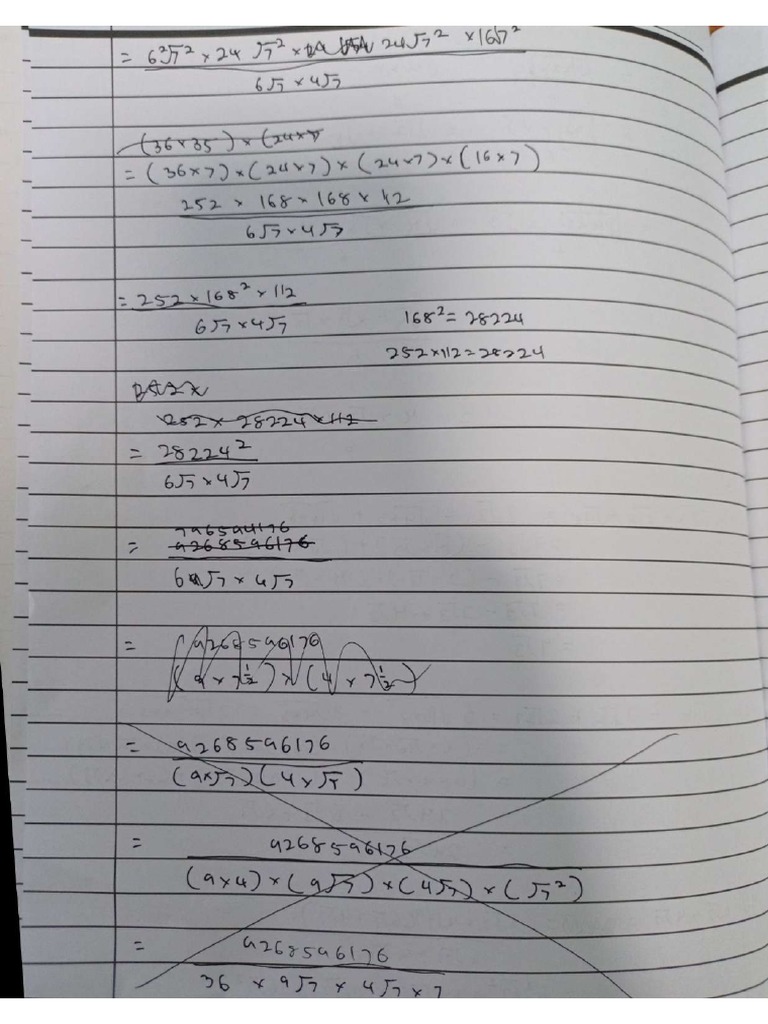 = 6²√7² × 24 √7² × 24√7² × 16√7²
6√7 × 4√7
(36×35) × (24×7
= (36×7) × (24×7) × (24×7) × (16×7)
252 × 168 × 168 × 112
6√7 × 4√7
= 252 × 168² × 112
6√7 × 4√7
168² = 28224
252×112 = 28224
252×
252 × 28224 × 112
= 28224²
6√7 × 4√7
796594176
= 9268596176
6√7 × 4√7
= 9268596176
(9 × 7½) × (4 × 7½)
= 9268596176
(9×√7) (4×√7)
= 9268596176
(9×4) × (9√7) × (4√7) × (√7²)
= 9268596176
36 × 9√7 × 4√7 × 7